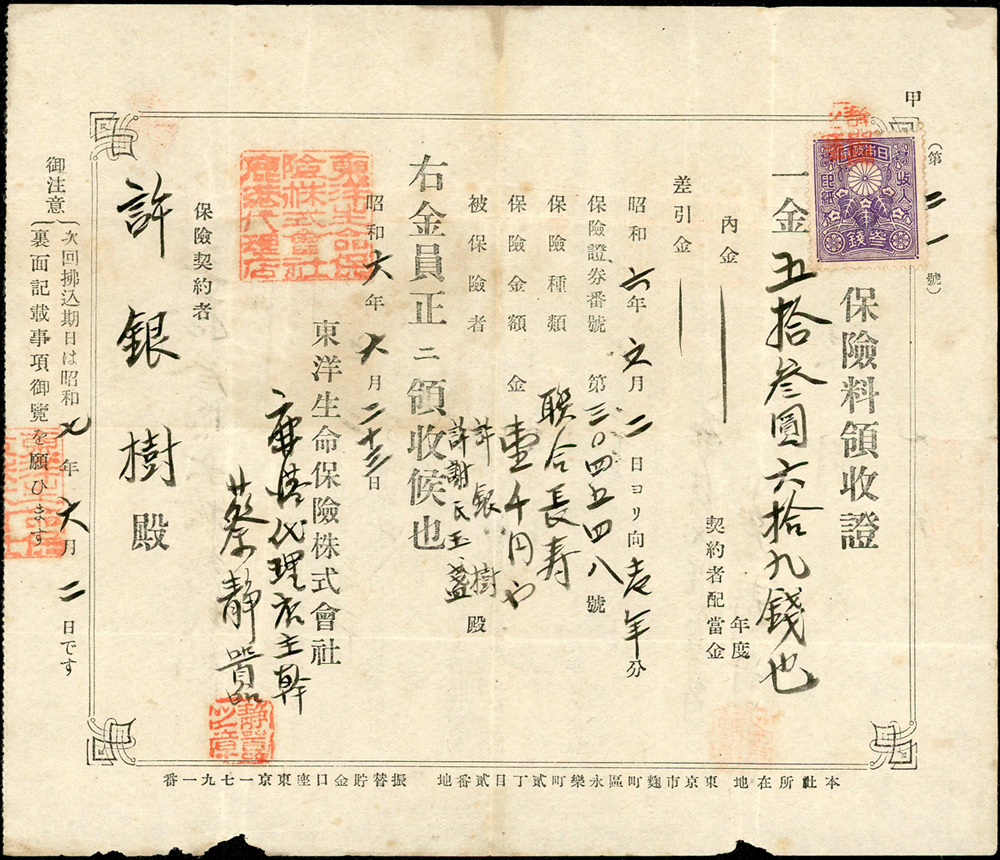 甲
(第二一號)
保險料領收證
一金五拾叁圓六拾九錢也
內金
年度
契約者配當金
差引金
昭和六年六月二日ヨリ向壱年分
保險證券番號 第三〇四五四八號
保險種類 聯合長寿
保險金額 金壹千円也
被保險者 許銀樹
許謝氏玉盞 殿
右金員正ニ領收候也
昭和六年六月二十三日
東洋生命保險株式會社
鹿港代理店主幹
蔡靜
保險契約者
許銀樹殿
御注意
次回拂込期日は昭和七年六月二日です
裏面記載事項御覽を願ひます
日本帝國政府
收入印紙
叁錢
東洋生命保險株式會社鹿港代理店
本社所在地 東京市麹町區永樂町貳丁目貳番地 振替貯金口座東京一七九一番